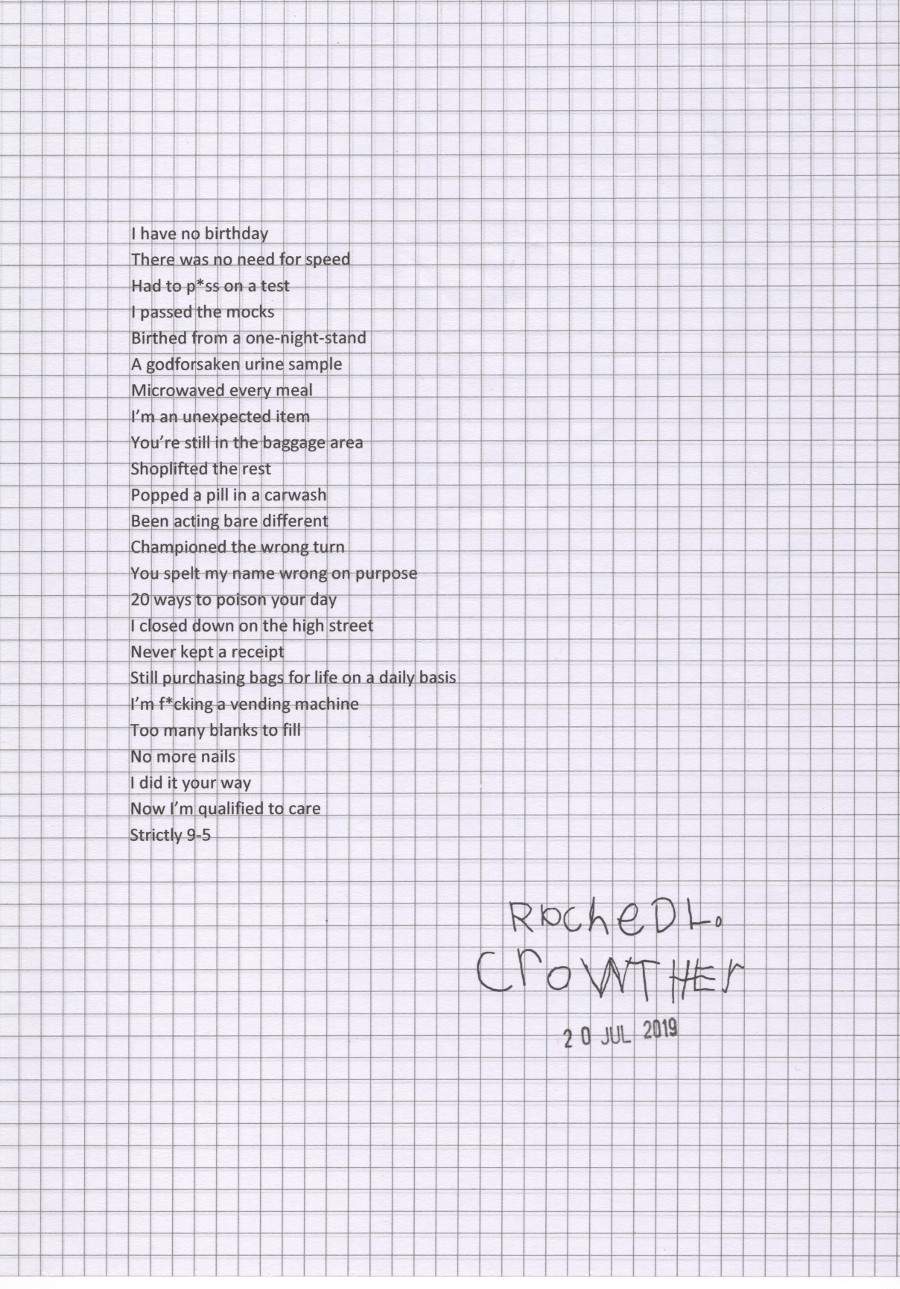 I have no birthday
There was no need for speed
Had to p*ss on a test
I passed the mocks
Birthed from a one-night-stand
A godforsaken urine sample
Microwaved every meal
I’m an unexpected item
You’re still in the baggage area
Shoplifted the rest
Popped a pill in a carwash
Been acting bare different
Championed the wrong turn
You spelt my name wrong on purpose
20 ways to poison your day
I closed down on the high street
Never kept a receipt
Still purchasing bags for life on a daily basis
I’m f*cking a vending machine
Too many blanks to fill
No more nails
I did it your way
Now I’m qualified to care
Strictly 9-5
L.
CroWTHEr
20 JUL 2019